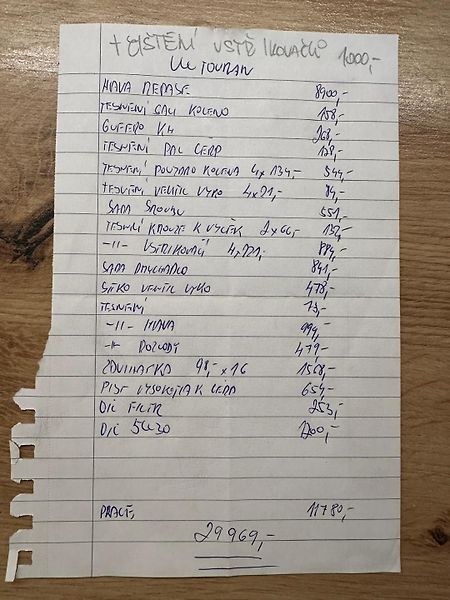 + ČIŠTĚNÍ VSTŘIKOVAČŮ 1000,-
VW TOURAN
HLAVA REPASE 8900,-
TESNENÍ SACI KOLENO 158,-
GUFERO KH 268,-
TESNENÍ PAL ČERP 128,-
TESNENÍ 4x134,- 544,-
TESNENÍ VENTIL VYKO 4x21,- 84,-
SADA ŠROUBU 551,-
TESNENÍ KROUZE K VÝČEK 2x66,- 132,-
-11- VSTRIKOVAČŮ 4x221,- 884,-
SADA 841,-
SITKO VENTIL VYKO 478,-
TESNENÍ 13,-
-11- HLAVA 994,-
-11- ROZVODY 479,-
ZDVIHATKA 98,- x 16 1568,-
PÍST VYSOKOTLAK ČERPA 654,-
OLEJ FILTR 253,-
OLEJ 5W30 1200,-
PRACE 11780,-
29969,-